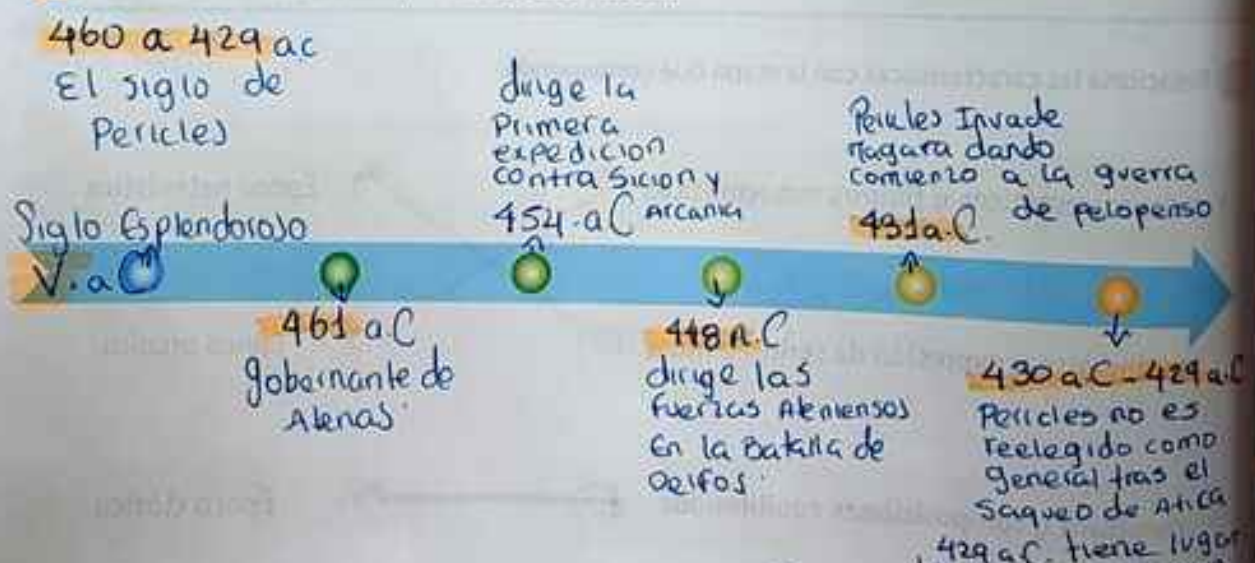 460 a 429 ac
El siglo de
Pericles
Siglo Esplendoroso
V. a C
461 a.C
gobernante de
Atenas
dirige la
Primera
expedicion
contra Sicion y
454-a C Arcania
448 a.C
dirige las
fuerzas Atenienses
En la Batalla de
Delfos.
Pericles Invade
magara dando
comienzo a la guerra
de pelopenso
431a.C.
430 a C - 429 a.C
Pericles no es
reelegido como
general tras el
saqueo de Atica
429 a C. tiene lugar